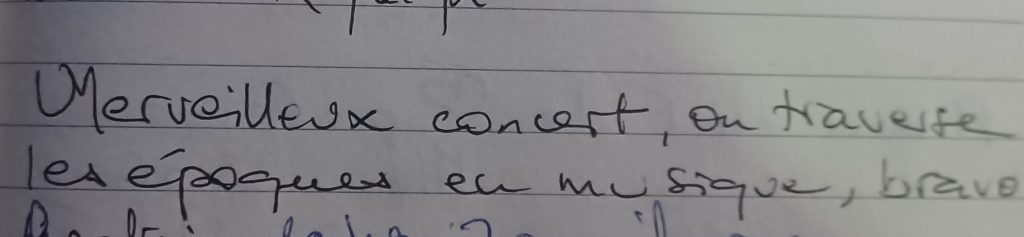 Merveilleux concert, on traverse
les époques en musique, bravo